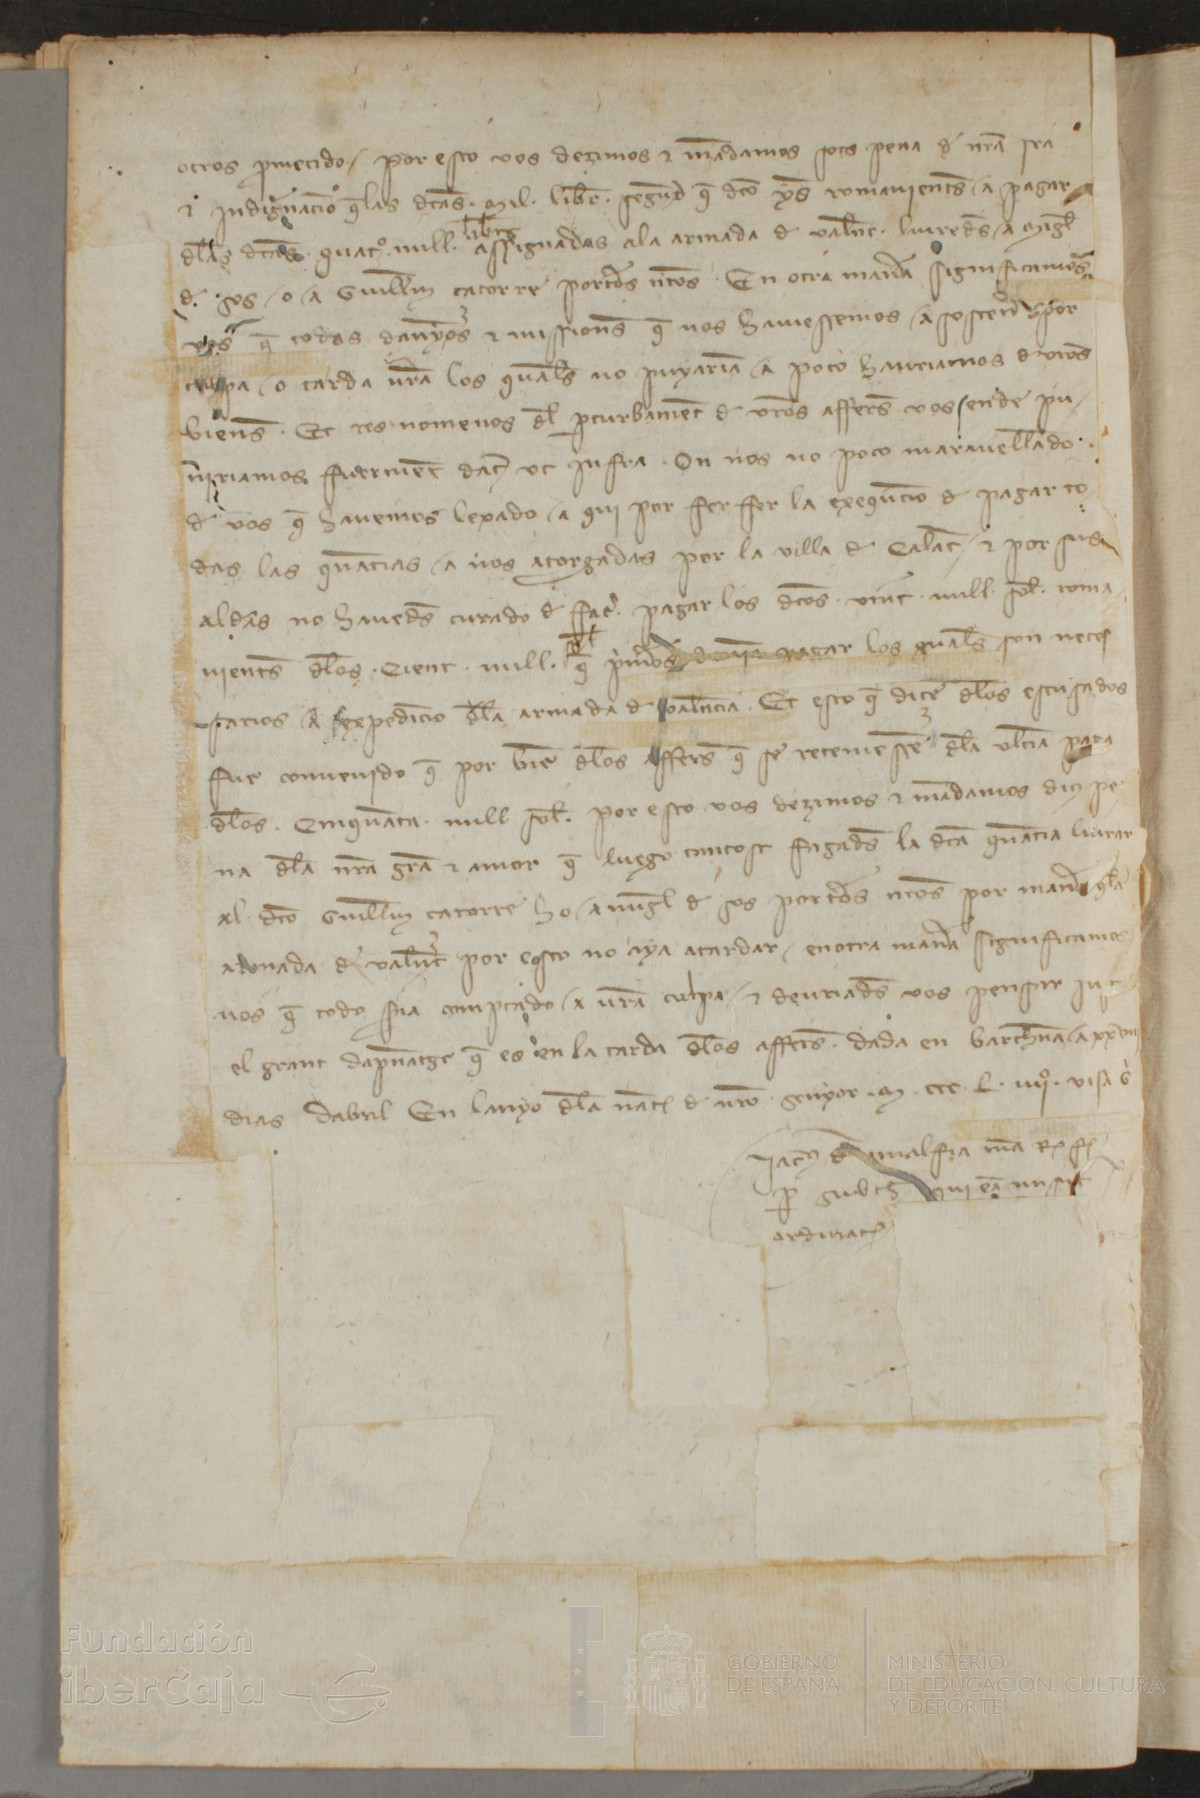 otros prometido / por esto vos dezimos ⁊ mãdamos sots pena d̃ nr̃a ira
⁊ indignacio q̃ las dc̃as . mil . libr̃ . segund q̃ dc̃o yes romanients / a pagar
dlas dc̃as . quatr̃o . mill . libr̃s assignadas ala armada d̃ valẽnc . liureds / a migl̃
d̃ gos / o / a Guillm̃ catorre portẽros nr̃os . En otra manr̃a significamos
vos q̃ todos danyos ⁊ missions q̃ nos hauessemos / a sostenr̃ por
culpa / o tarda vr̃a los quals no puyariã / a poco hauriamos d̃ vr̃os
biens . Et res nomenos dl̃ pturbament d̃ vr̃os affers vos ende pu
niriamos fuertment dat̃ ut infra . On nos no poco marauellado
d̃ vos q̃ hauemos lexado / a qui por fer fer la exequcio d̃ pagar to
das las quãtias / a nos atorgadas por la villa d̃ Calat̃ / ⁊ por sus
aldas no haueds curado d̃ fac̃r pagar los dc̃os . vint . mill . sol̃ . roma
nients dlos . Cient . mill . sol̃ q̃ pm̃os pagar los quals son neces
sarios / a expedicio dla armada d̃ valẽncia . Et esto q̃ dicẽ dlos escusados
fue conuenido q̃ por biẽ dlos affers q̃ se retenessẽ dla ultiã paga
dlos . Cinquãta . mill sol̃ . por esto vos dezimos ⁊ mãdamos dius pe
na dla nr̃a gr̃a ⁊ amor q̃ luego tantost fagads la dc̃a quãtia liurar
al dc̃o Guillm̃ catorre ho / a migl̃ d̃ gos portẽros nr̃os por manr̃a q̃ la
armada d̃ valẽnc̃ por esto no aya atardar / en otra manr̃a significamos
uos q̃ todo sia comptado / a vr̃a culpa / ⁊ deuriads vos pensar
el grant dapnatge q̃ es en la tarda dlos affers . dada en barchñna / a
dias dabril En lanyo dla nat̃ d̃ nr̃o senyor . M . ccc . L . iiiiº . visa
ordinac̃
Fundación
iberCaja
GOBIERNO
DE ESPAÑA
MINISTERIO
DE EDUCACIÓN, CULTURA
Y DEPORTE